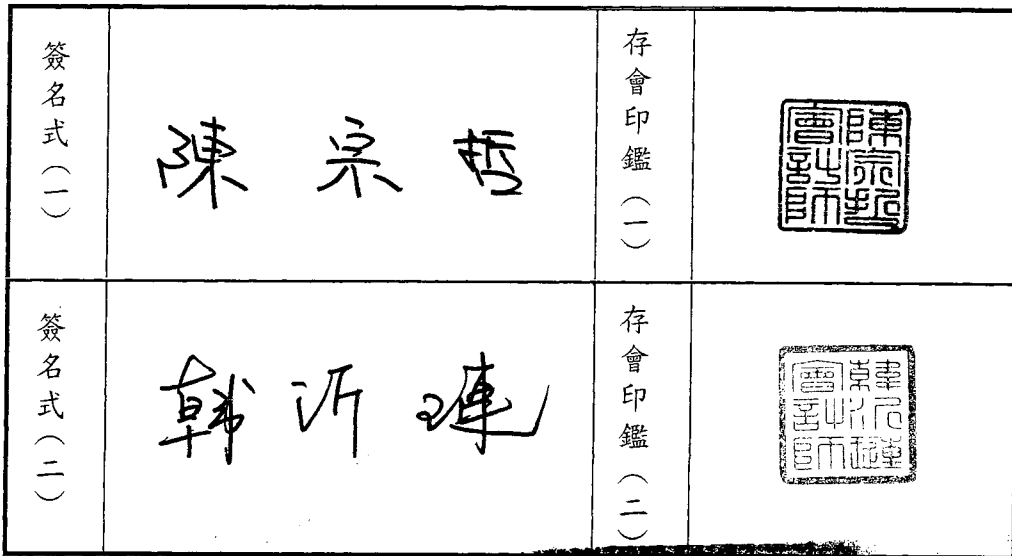 簽名式（一）
陳宗哲
存會印鑑（一）
陳宗哲會計師
簽名式（二）
韓沂璉
存會印鑑（二）
韓沂璉會計師